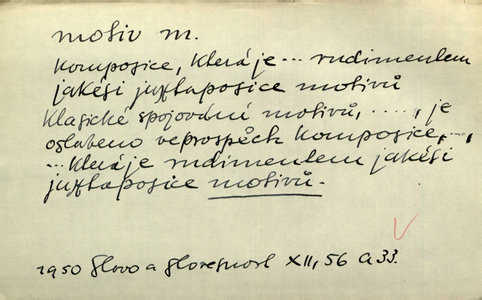 motiv m.
Komposice, která je ... rudimentem
jakési juxtaposice motivů
Klasické spojování motivů, ...., je
oslabeno ve prospěch komposice, ..,
... která je rudimentem jakési
juxtaposice motivů.
1950 Slovo a slovesnost XII, 56 a 33.